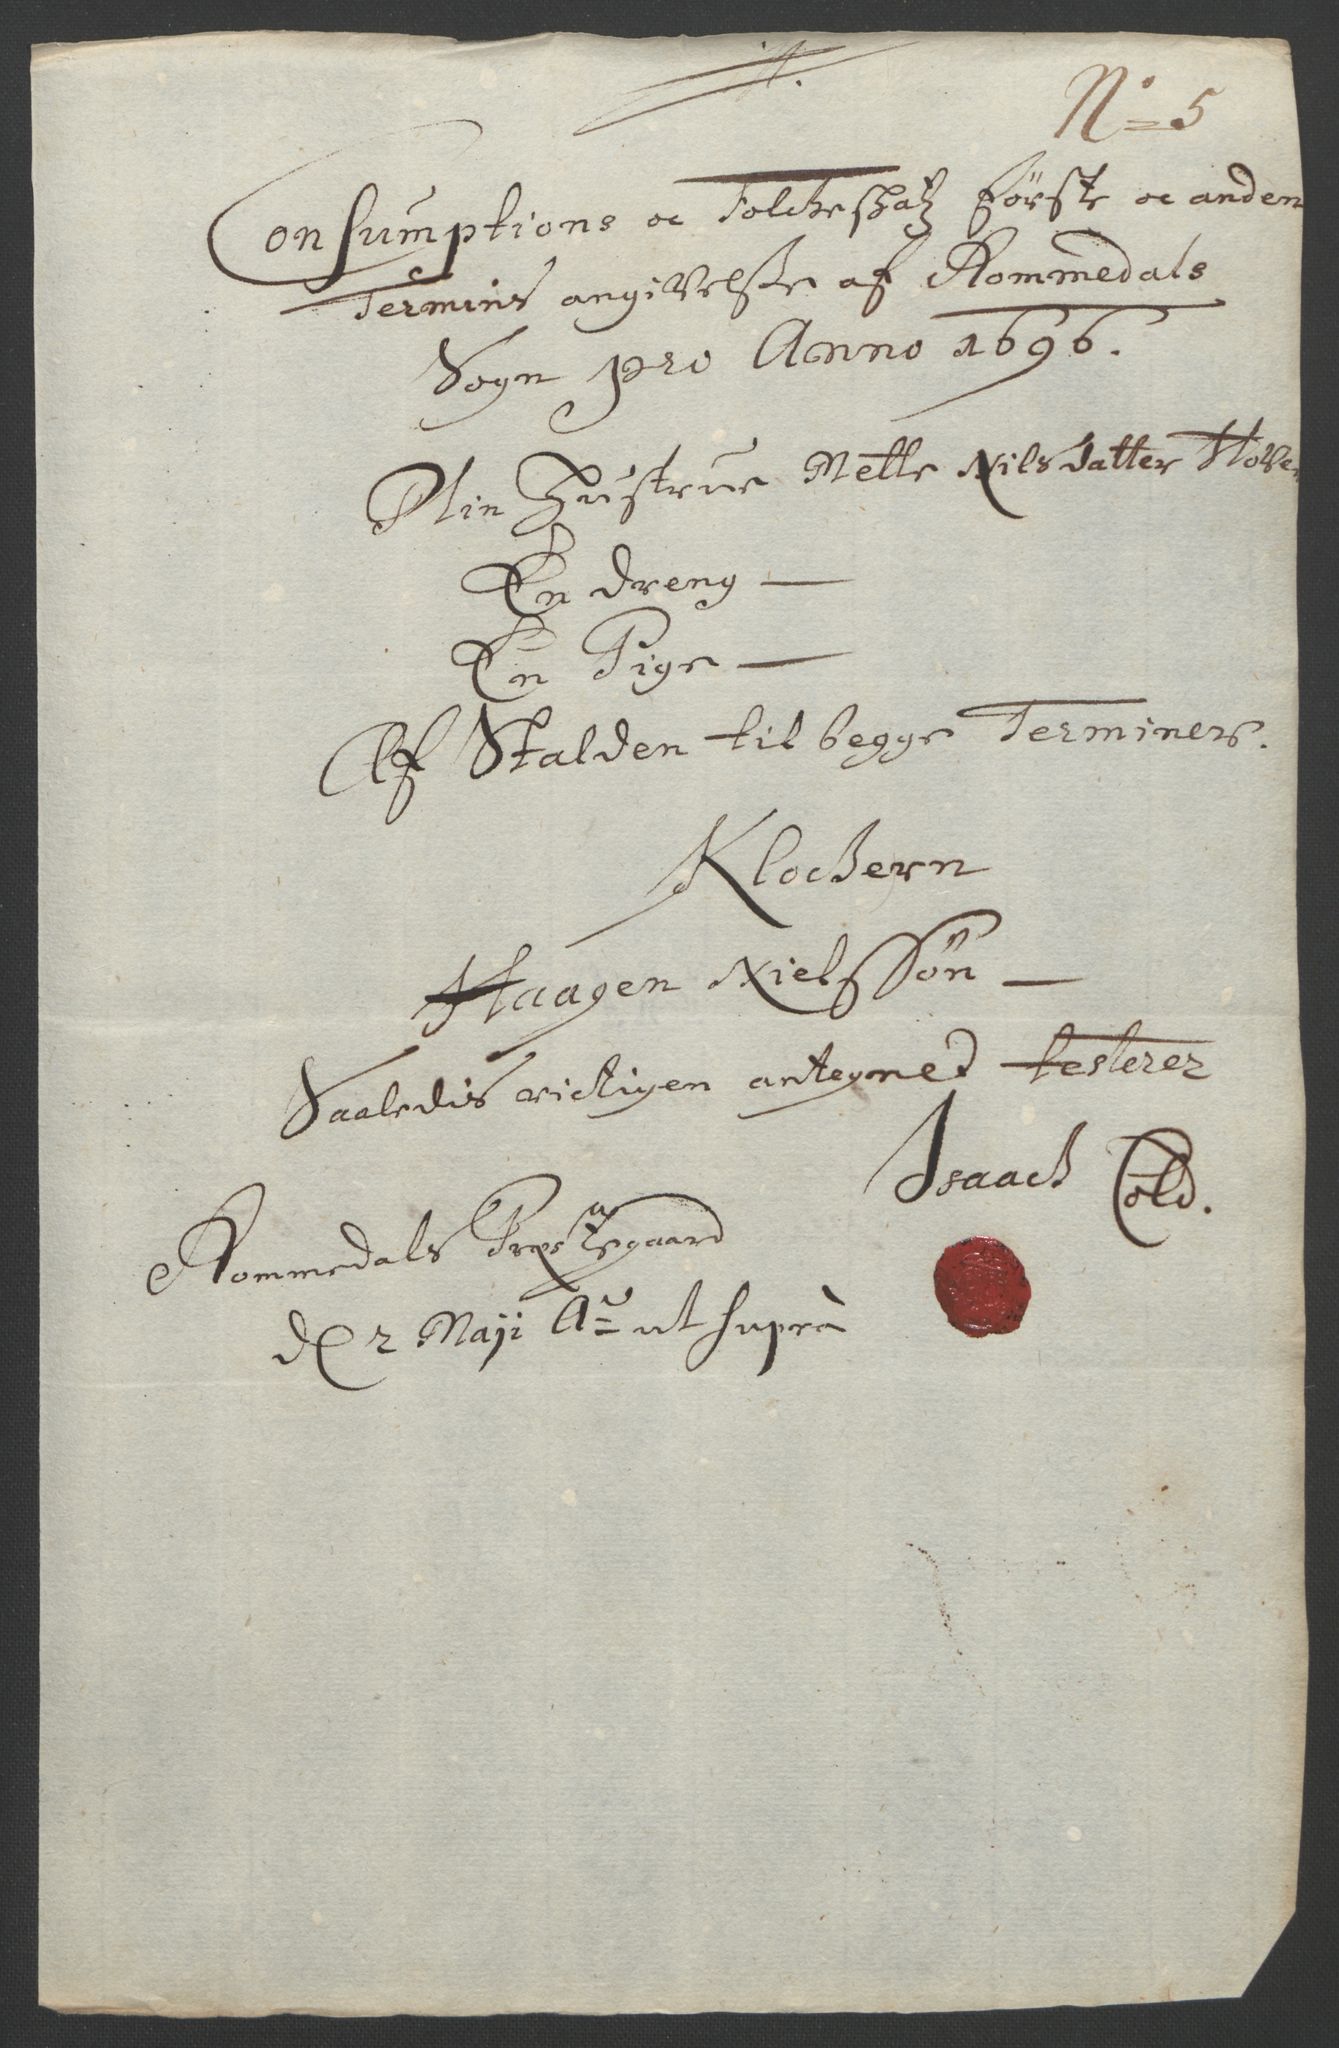 No 5
Consumptions oc Folcheskatz Første oc anden
Termins angivelse af Rommedals
Sogn pro Anno 1696.
Min Hustrue Mette Nilsdatter
En dreng —
En Pige —
Af Stalden til begge Terminer.
Klockern
Haagen Nielssøn —
Saaledis rictigen antegned testerer
Isaach Cold.
Rommedals Præstegaard
d 2 Maji Ao ut suprà